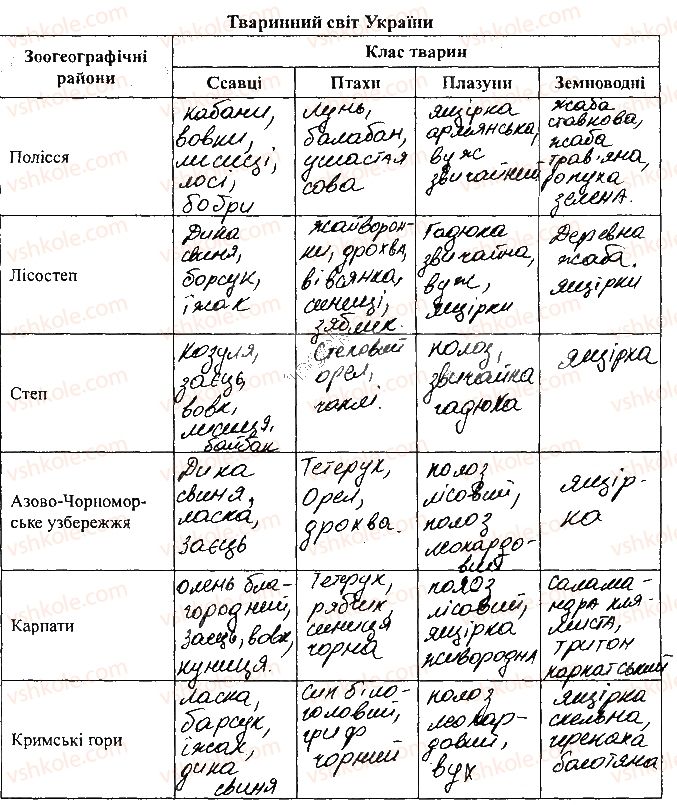 Тваринний світ України
Зоогеографічні райони
Клас тварин
Ссавці
Птахи
Плазуни
Земноводні
Полісся
кабани,
вовки,
лисиці,
лосі,
бобри
лунь,
балабан,
ушастая
сова
ящірка
армянська,
вуж
звичайний
жаба
ставкова,
жаба
трав'яна,
ропуха
зелена.
Лісостеп
Дика
свиня,
борсук,
їжак
жайворон-
ки, дрохва,
вівсянка,
синиці,
зяблик.
Гадюка
звичайна,
вуж,
ящірки
Деревна
жаба.
ящірки
Степ
Козуля,
заєць,
вовк,
лисиця,
байбак
Степовий
орел,
чаплі.
полоз,
звичайна
гадюка
ящірка
Азово-Чорномор-
ське узбережжя
Дика
свиня,
ласка,
заєць
Тетерук,
Орел,
дрохва.
полоз
лісовий,
полоз
леопардо-
вий
ящір-
ка
Карпати
олень бла-
городний,
заєць, вовк,
куниця.
Тетерук,
рябчик,
синиця
чорна
полоз
лісовий,
ящірка
живородна
салама-
ндра пля-
миста,
тритон
карпатський
Кримські гори
ласка,
барсук,
їжак,
дика
свиня
сип біло-
головий,
гриф
чорний
полоз
леопар-
довий,
вуж
ящірка
скельна,
черепаха
болотяна
vshkole.com